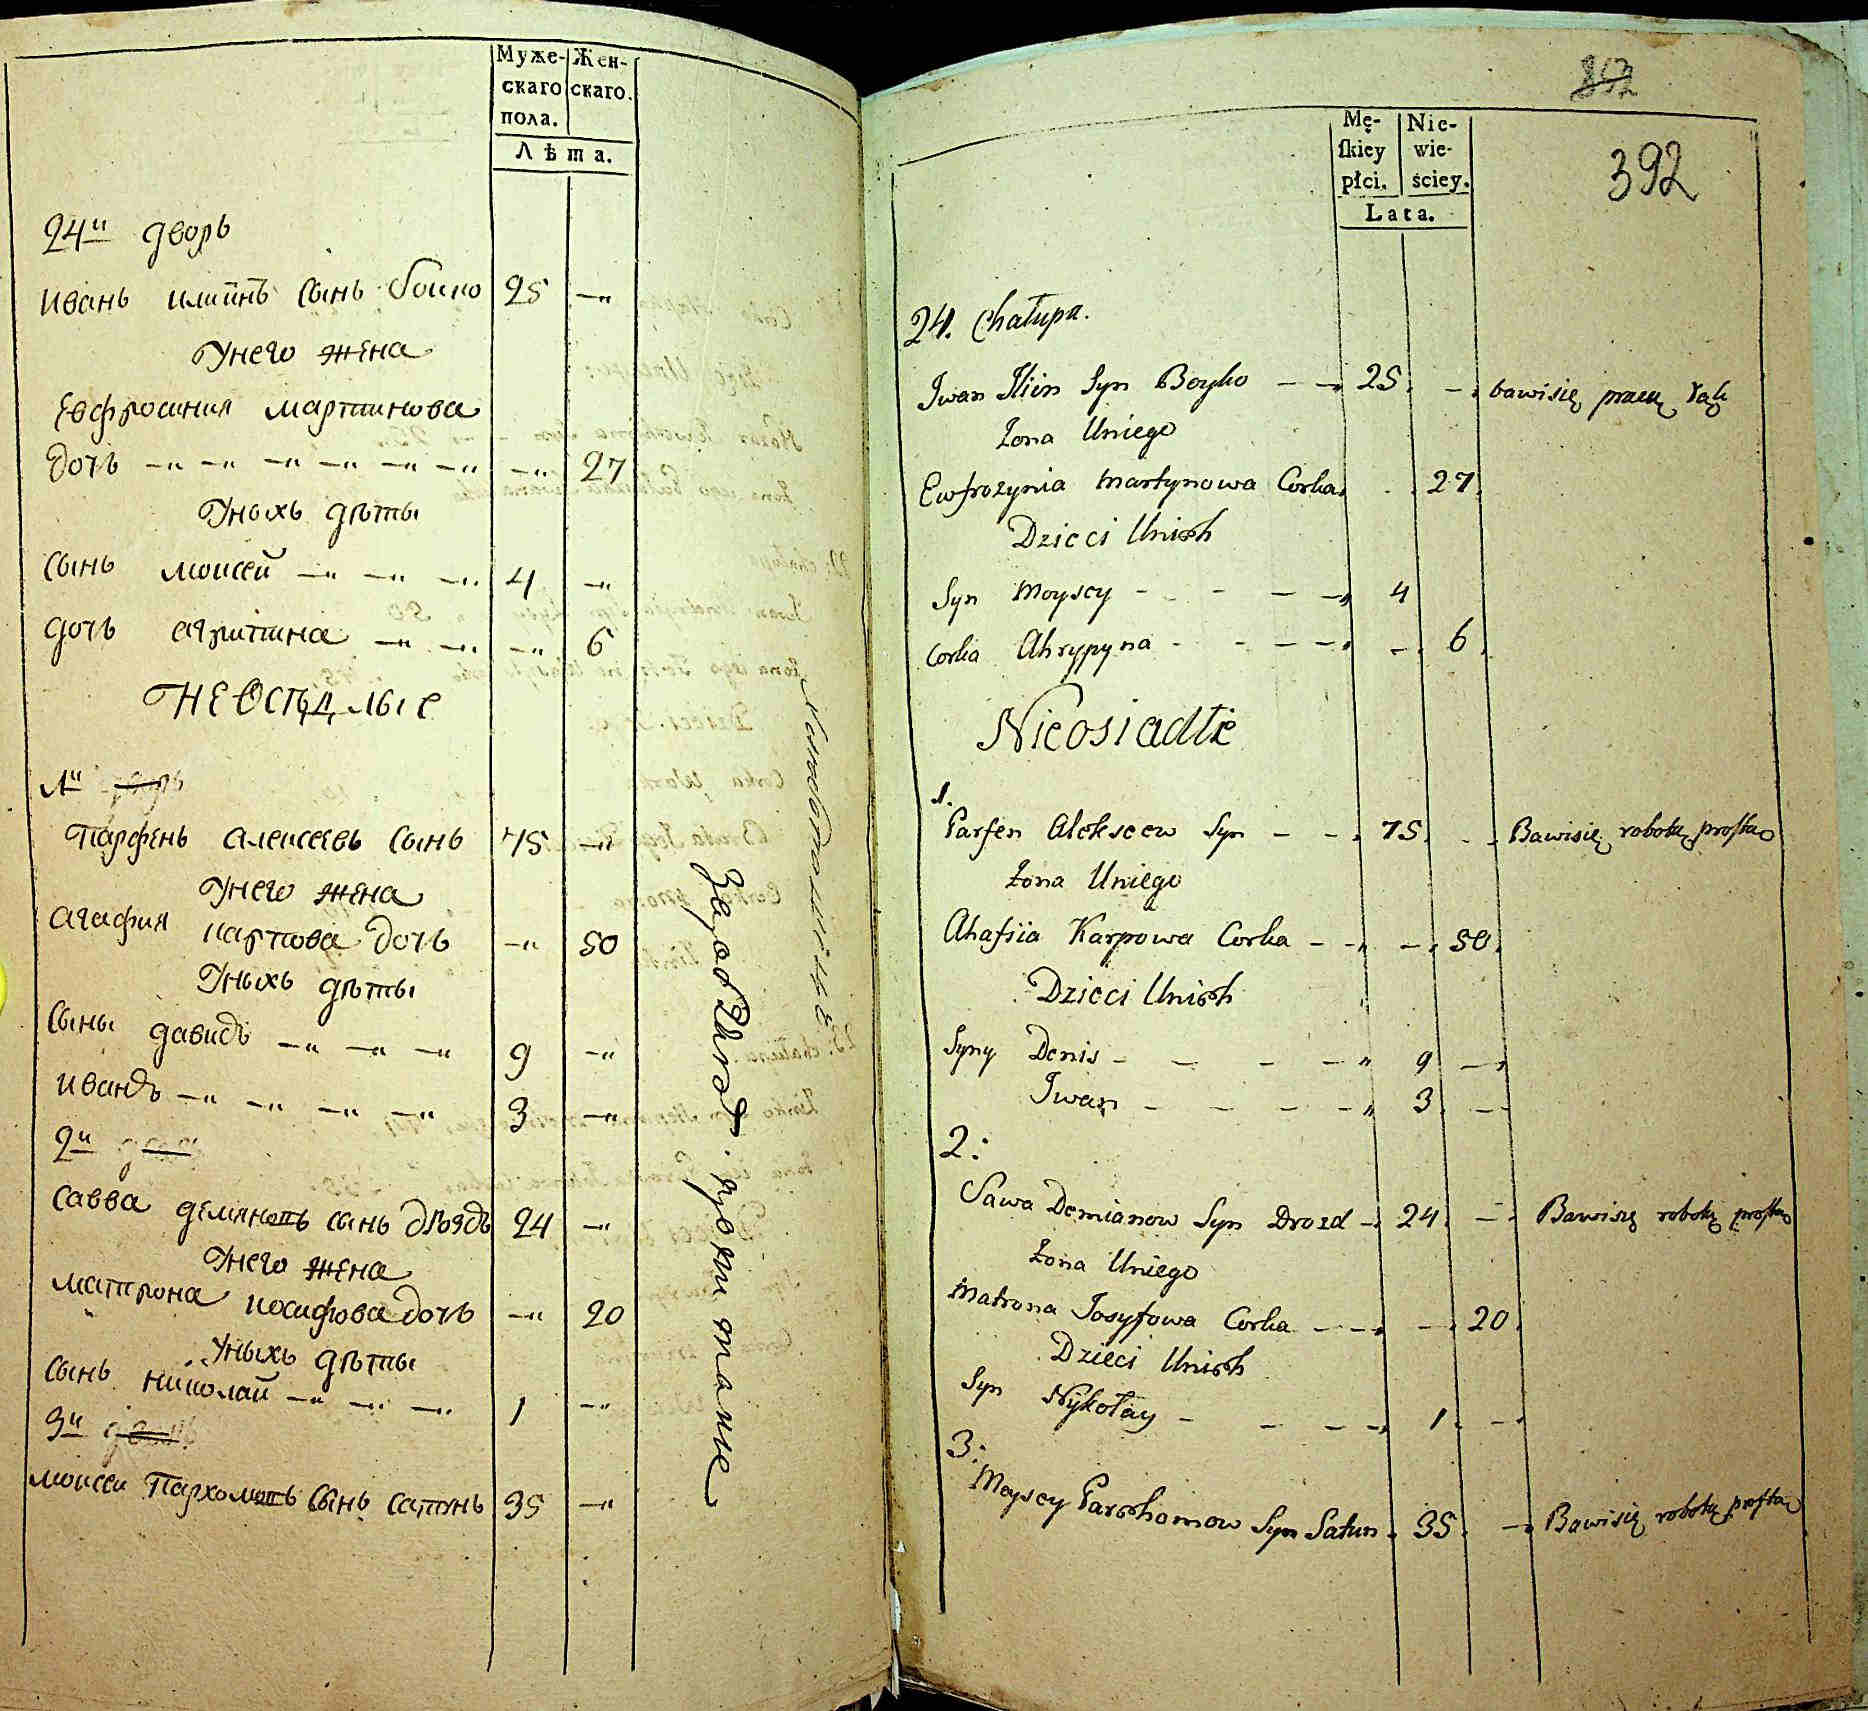 Муже- Жен-
скаго скаго.
пола.
Лѣта.
24й дворъ
Иванъ илиинъ сынъ бойко 25 —"
Унего жена
Евфросиния мартинова
дочь —" —" —" —" —" —" —" 27
Уныхъ дѣты
Сынъ моисей —" —" —" 4 —"
дочь агрипина —" —" —" 6
НЕОСѢДЛЫЕ
1й дворъ
Парфенъ алексеевъ сынъ 75 —"
Унего жена
агафия карпова дочь —" 50
Уныхъ дѣты
Сыны давидъ —" —" —" 9 —"
иванъ —" —" —" —" 3 —"
2й дворъ
Савва демяновъ сынъ дроздъ 24 —"
Унего жена
матрона иосифова дочь —" 20
Уныхъ дѣты
Сынъ николай —" —" —" 1 —"
3й дворъ
моисей Пархомовъ сынъ сатунъ 35 —"
пропитание
392
Mę- Nie-
skiey wie-
płci. ściey.
Lata.
24. Chałupa.
Iwan Ilin Syn Boyko — — 25. —. bawisię pracą rąk
Żona Uniego
Ewfrozynia Martynowa Corka. . . 27.
Dzieci Unich
Syn Moysey - - — —" 4
Corka Ahrypyna - - — — . — . 6.
Nieosiadłe
1.
Parfen Alekseew Syn — — . 75. . . Bawisię robotą prostą
Żona Uniego
Ahafiia Karpowa Corka — —" — . 50.
Dzieci Unich
Syny Denis — — — — " 9 —"
Iwan — — — —" 3. — —
2:
Sawa Demianow Syn Drozd —. 24. — . Bawisię robotą prostą
Żona Uniego
Matrona Josyfowa Corka — — —" — . 20.
Dzieci Unich
Syn Nykołay — — — —" 1. —"
3:
Moysey Parchomow Syn Satun . 35. —. Bawisię robotą prostą